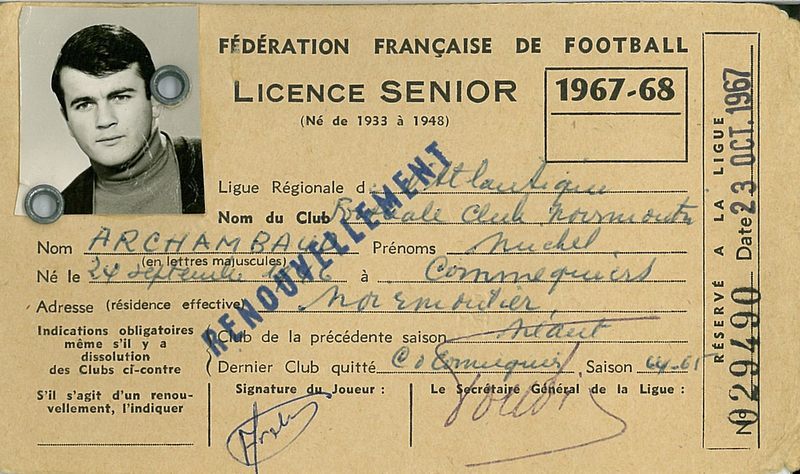 FÉDÉRATION FRANÇAISE DE FOOTBALL
LICENCE SENIOR
1967-68
(Né de 1933 à 1948)
Ligue Régionale d Atlantique
Nom du Club Club Noirmoutr
Nom ARCHAMBAUD Prénoms Michel
(en lettres majuscules)
Né le 24 septembre à Commequiers
Adresse (résidence effective) Noirmoutier
RENOUVELLEMENT
Indications obligatoires
même s'il y a
dissolution
des Clubs ci-contre
Club de la précédente saison Néant
Dernier Club quitté Saison 64-65
S'il s'agit d'un renou-
vellement, l'indiquer
Signature du Joueur :
Le Secrétaire Général de la Ligue :
RÉSERVÉ A LA LIGUE
Date 23 OCT. 1967
No 029490